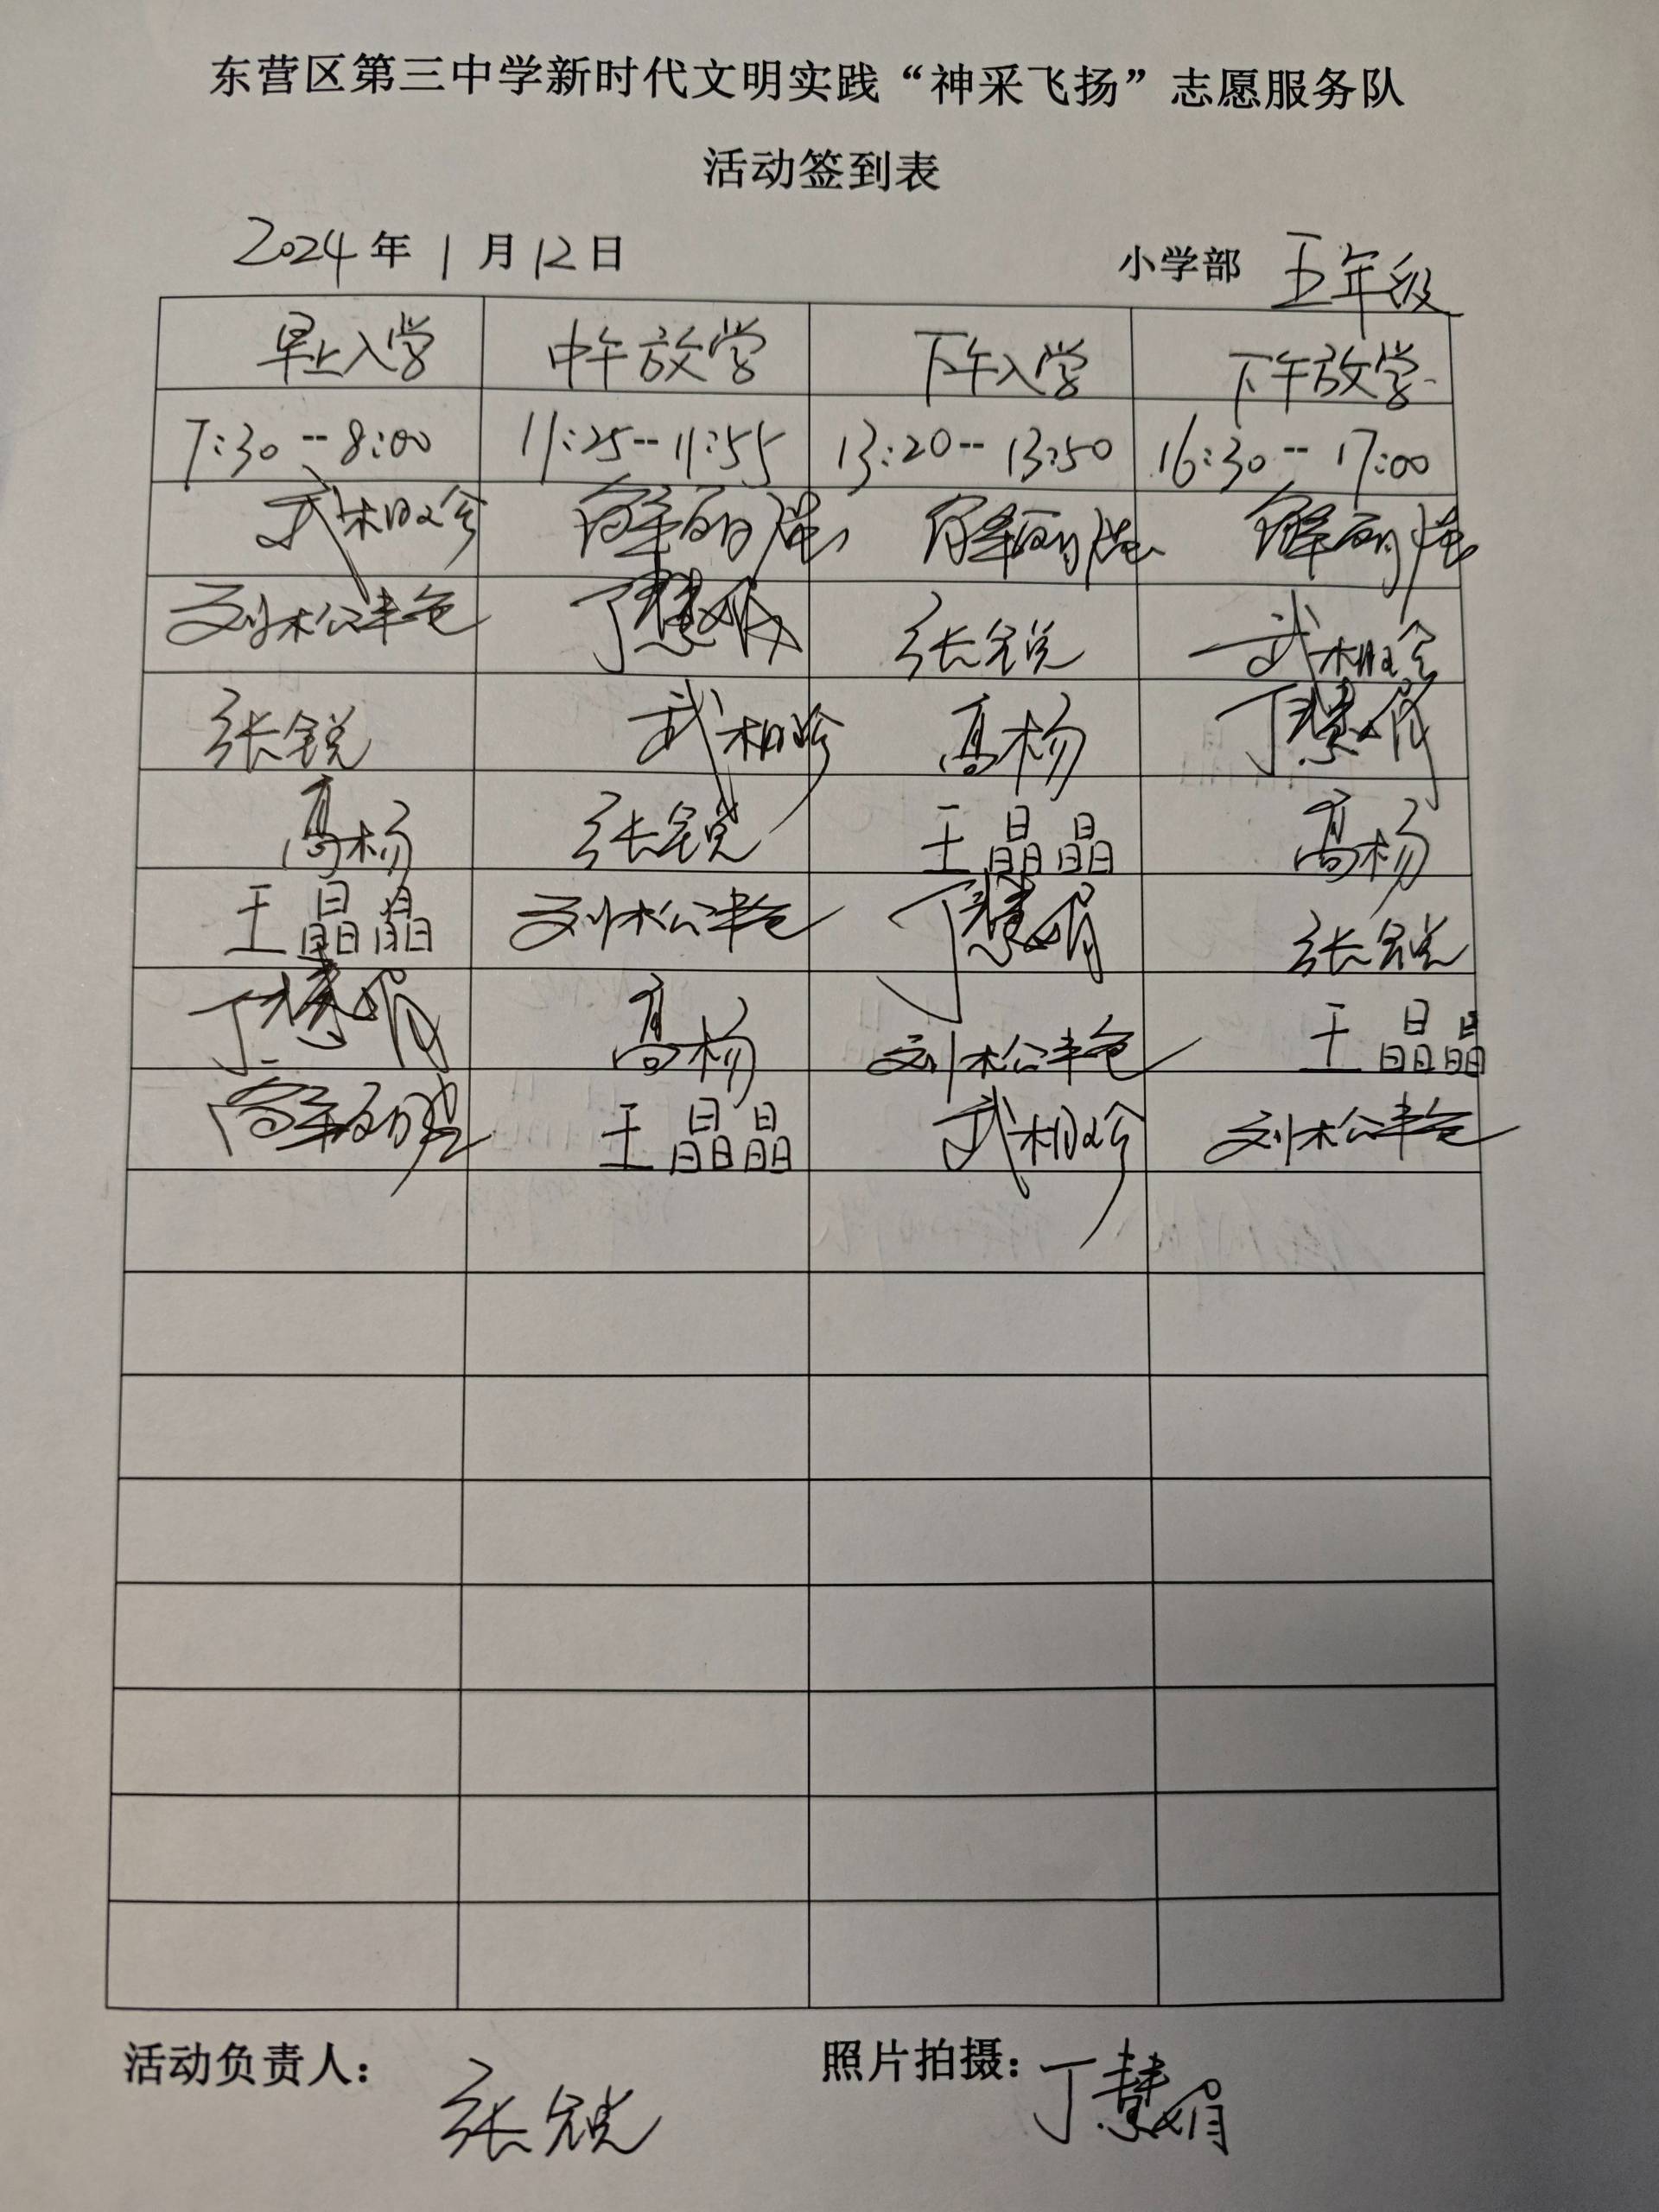 东营区第三中学新时代文明实践“神采飞扬”志愿服务队
活动签到表
2024年1月12日 小学部 五年级
早上入学 中午放学 下午入学 下午放学
7:30--8:00 11:25--11:55 13:20--13:50 16:30--17:00
武相珍 解丽 解丽 解丽
刘松艳 丁慧娟 张锐 武相珍
张锐 武相珍 高杨 丁慧娟
高杨 张锐 王晶晶 高杨
王晶晶 刘松艳 丁慧娟 张锐
丁慧娟 高杨 刘松艳 王晶晶
解丽 王晶晶 武相珍 刘松艳
活动负责人：张锐 照片拍摄：丁慧娟